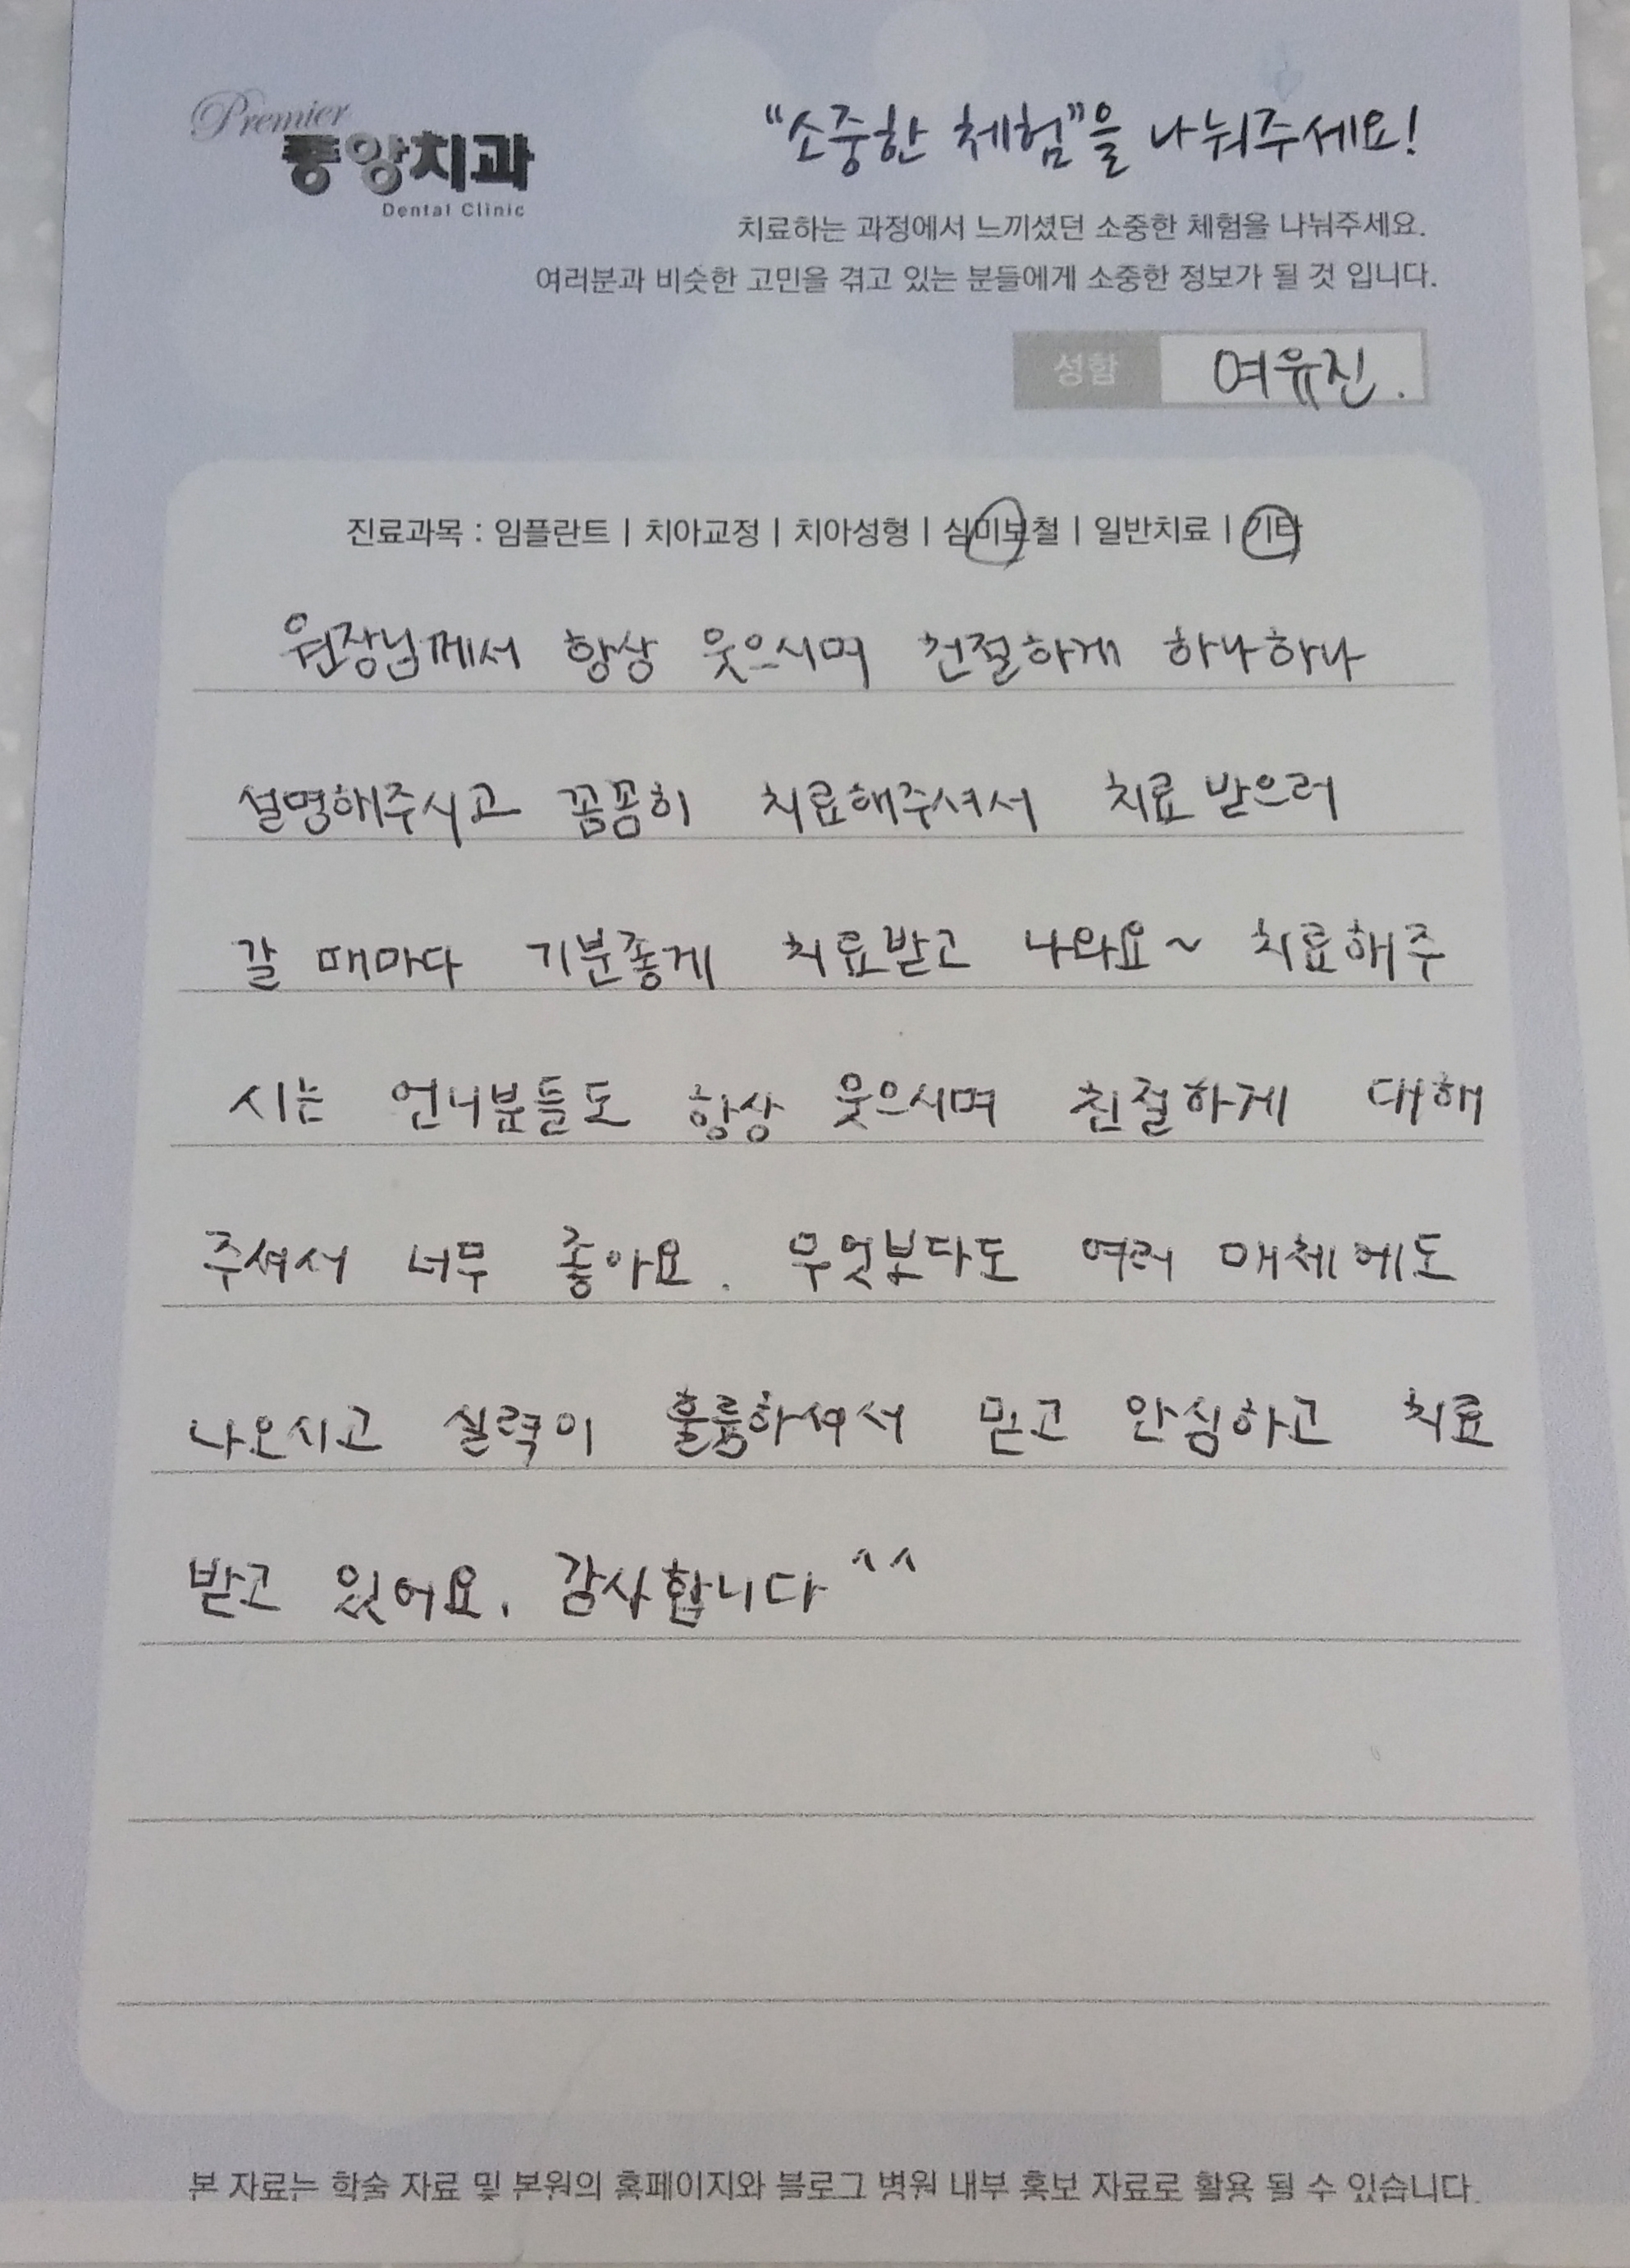 Premier
중앙치과
Dental Clinic
"소중한 체험"을 나눠주세요!
치료하는 과정에서 느끼셨던 소중한 체험을 나눠주세요.
여러분과 비슷한 고민을 겪고 있는 분들에게 소중한 정보가 될 것 입니다.
성함 여유진.
진료과목 : 임플란트 | 치아교정 | 치아성형 | 심미보철 | 일반치료 | 기타
원장님께서 항상 웃으시며 친절하게 하나하나
설명해주시고 꼼꼼히 치료해주셔서 치료 받으러
갈 때마다 기분좋게 치료받고 나와요~ 치료해주
시는 언니분들도 항상 웃으시며 친절하게 대해
주셔서 너무 좋아요. 무엇보다도 여러 매체에도
나오시고 실력이 훌륭하셔서 믿고 안심하고 치료
받고 있어요. 감사합니다^^
본 자료는 학술 자료 및 본원의 홈페이지와 블로그 병원 내부 홍보 자료로 활용 될 수 있습니다.